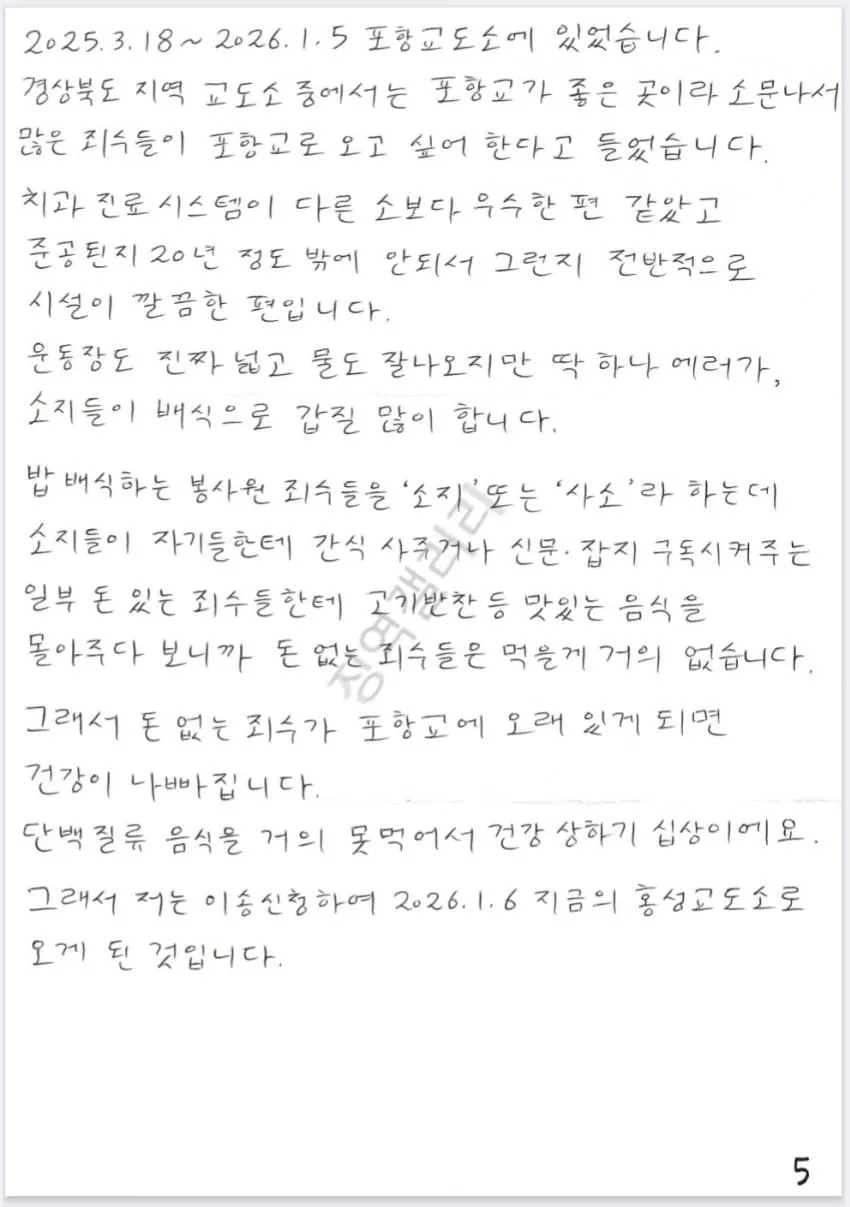 2025.3.18~2026.1.5 포항교도소에 있었습니다.
경상북도 지역 교도소 중에서는 포항교가 좋은 곳이라 소문나서
많은 죄수들이 포항교로 오고 싶어 한다고 들었습니다.
치과 진료 시스템이 다른 소보다 우수한 편 같았고
준공된지 20년 정도 밖에 안되서 그런지 전반적으로
시설이 깔끔한 편입니다.
운동장도 진짜 넓고 물도 잘나오지만 딱 하나 에러가,
소지들이 배식으로 갑질 많이 합니다.
밥 배식하는 봉사원 죄수들을 '소지' 또는 '사소'라 하는데
소지들이 자기들한테 간식 사주거나 신문·잡지 구독시켜주는
일부 돈 있는 죄수들한테 고기반찬 등 맛있는 음식을
몰아주다 보니까 돈 없는 죄수들은 먹을게 거의 없습니다.
그래서 돈 없는 죄수가 포항교에 오래 있게 되면
건강이 나빠집니다.
단백질류 음식을 거의 못먹어서 건강 상하기 십상이에요.
그래서 저는 이송신청하여 2026.1.6 지금의 홍성교도소로
오게 된 것입니다.
징역갤러리
5